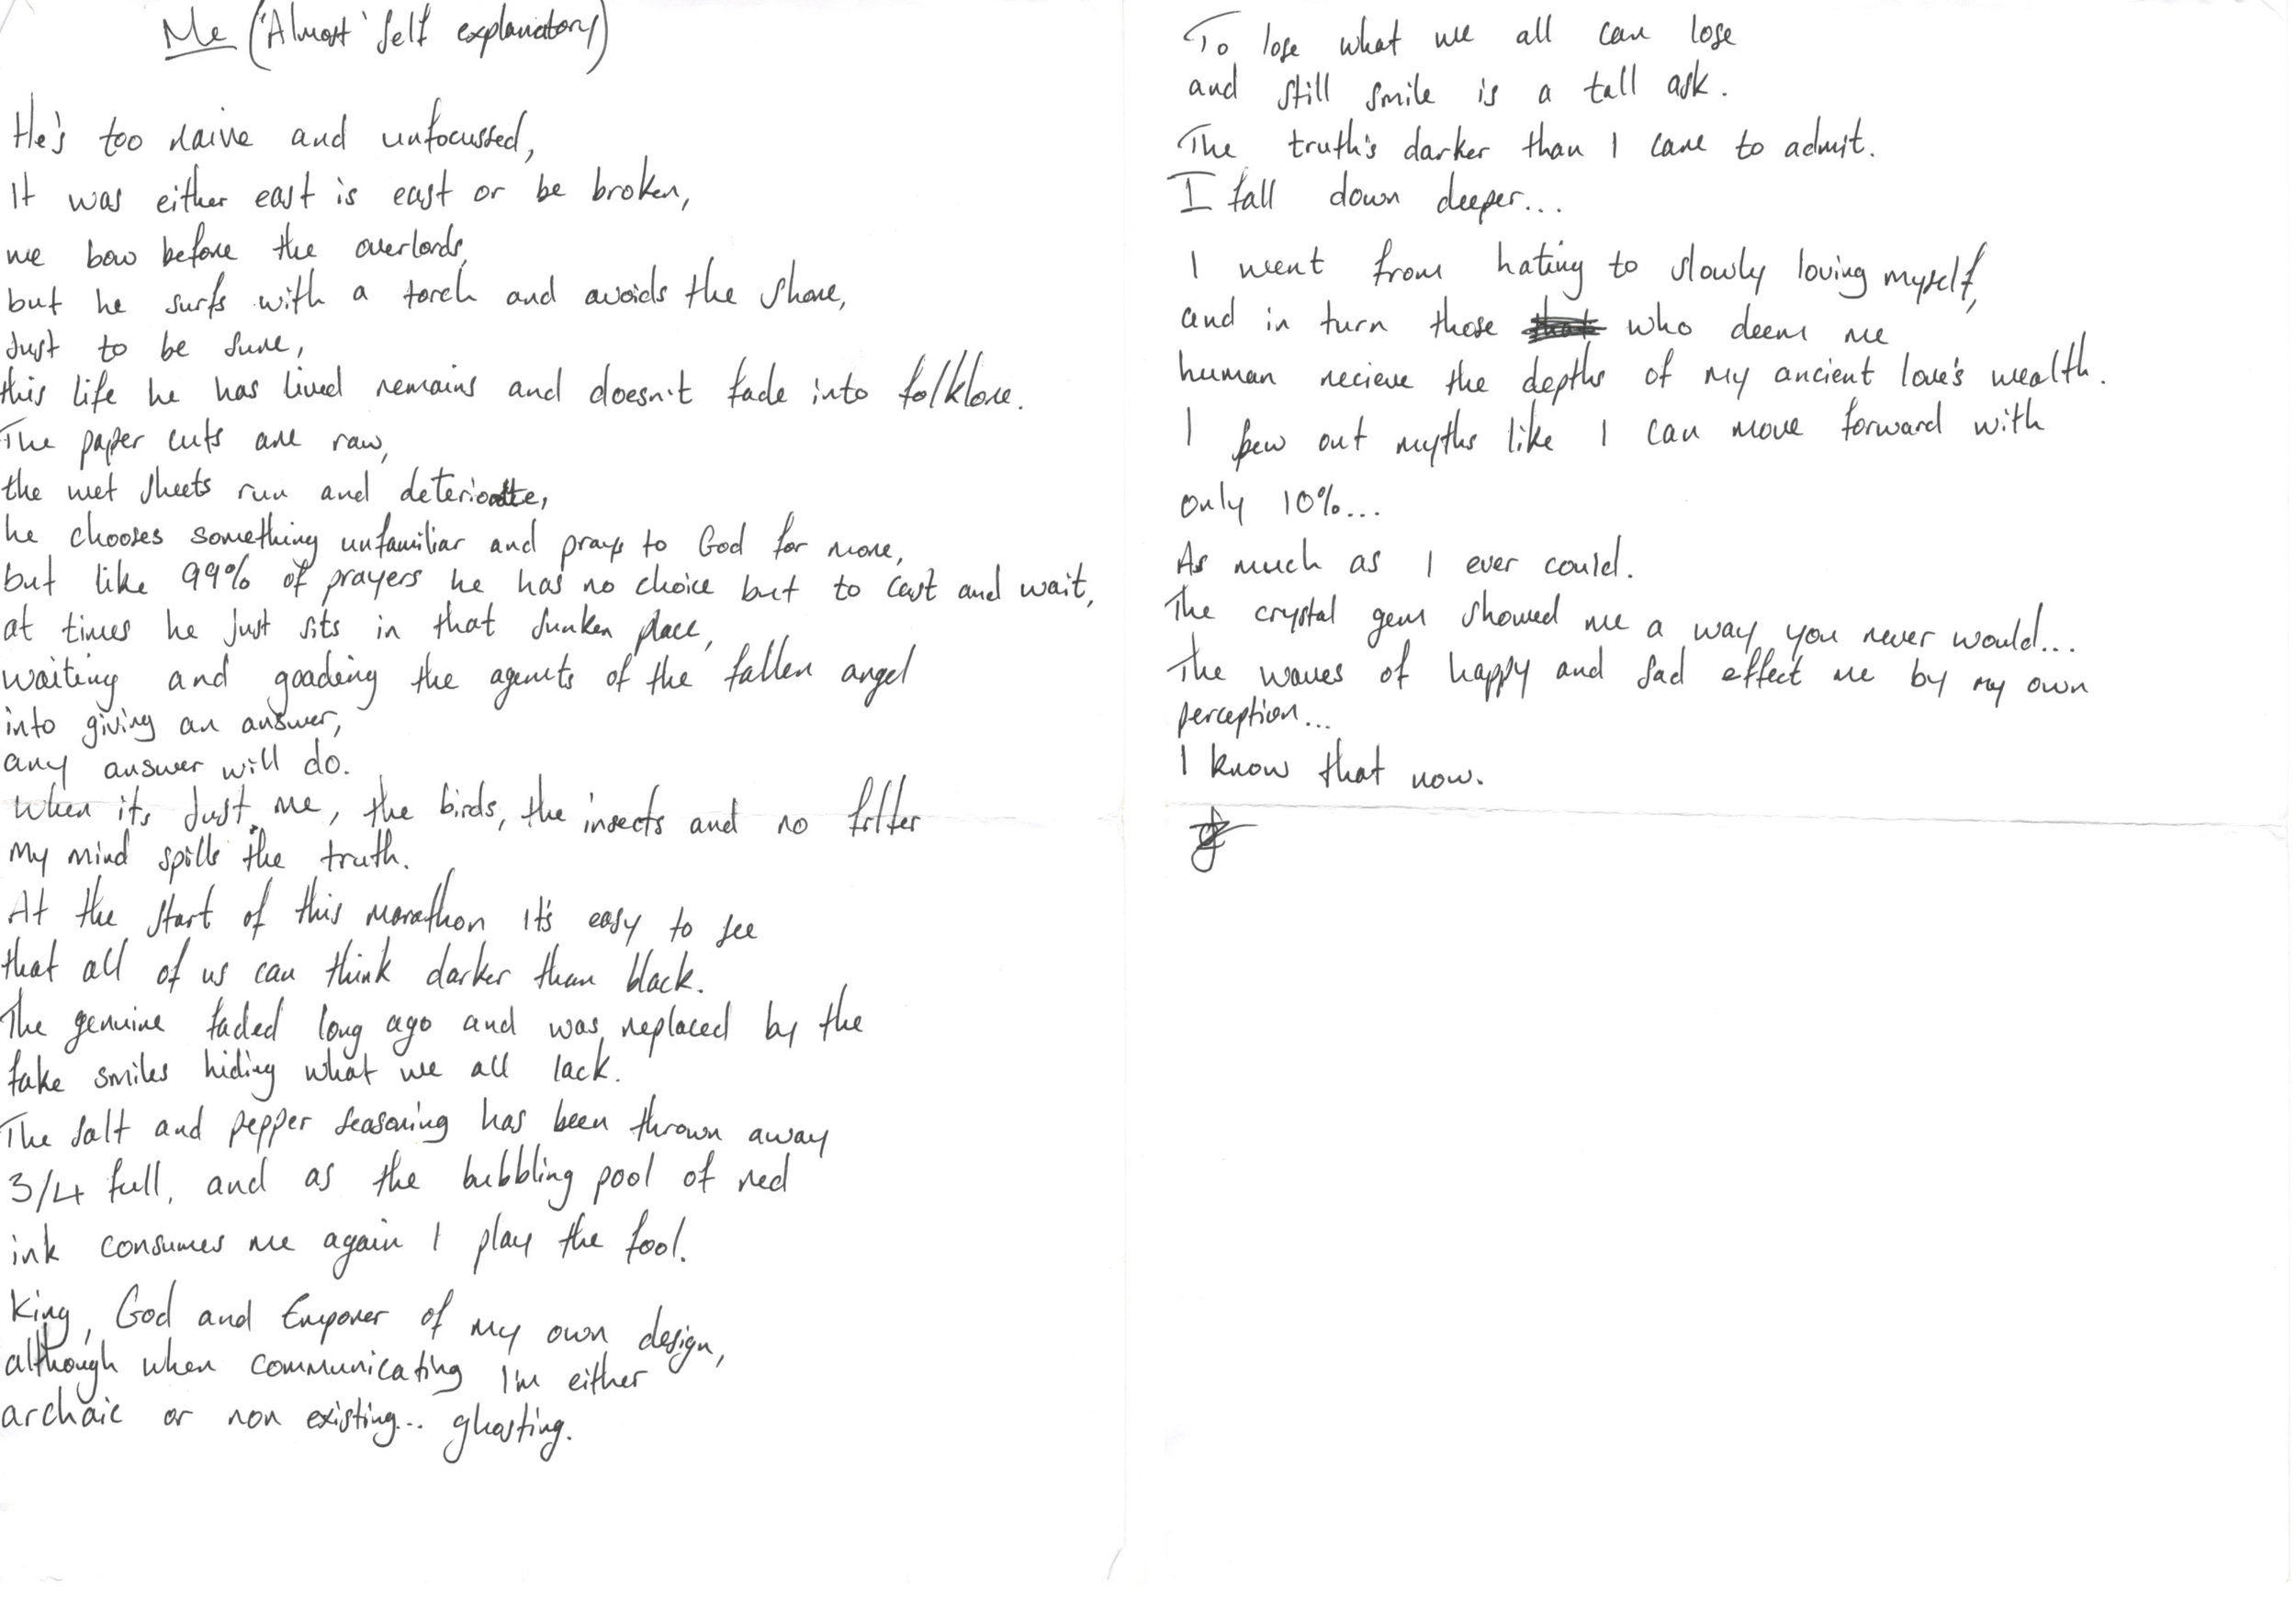 Me ('Almost' self explanatory)
He's too naive and unfocussed,
It was either east is east or be broken,
we bow before the overlords,
but he surfs with a torch and avoids the shore,
Just to be sure,
this life he has lived remains and doesn't fade into folklore.
The paper cuts are raw,
the wet sheets run and deteriorate,
he chooses something unfamiliar and prays to God for more,
but like 99% of prayers he has no choice but to cast and wait,
at times he just sits in that sunken place,
waiting and goading the agents of the fallen angel
into giving an answer,
any answer will do.
When its just me, the birds, the insects and no filter
My mind spills the truth.
At the start of this marathon it's easy to see
that all of us can think darker than black.
The genuine faded long ago and was replaced by the
fake smiles hiding what we all lack.
The salt and pepper seasoning has been thrown away
3/4 full, and as the bubbling pool of red
ink consumes me again I play the fool.
King, God and Emporer of my own design,
although when communicating I'm either
archaic or non existing... ghosting.
To lose what we all can lose
and still smile is a tall ask.
The truth's darker than I care to admit.
I fall down deeper...
I went from hating to slowly loving myself,
and in turn those who deem me
human recieve the depths of my ancient love's wealth.
I spew out myths like I can move forward with
only 10%...
As much as I ever could.
The crystal gem showed me a way you never would...
The waves of happy and sad effect me by my own
perception...
I know that now.